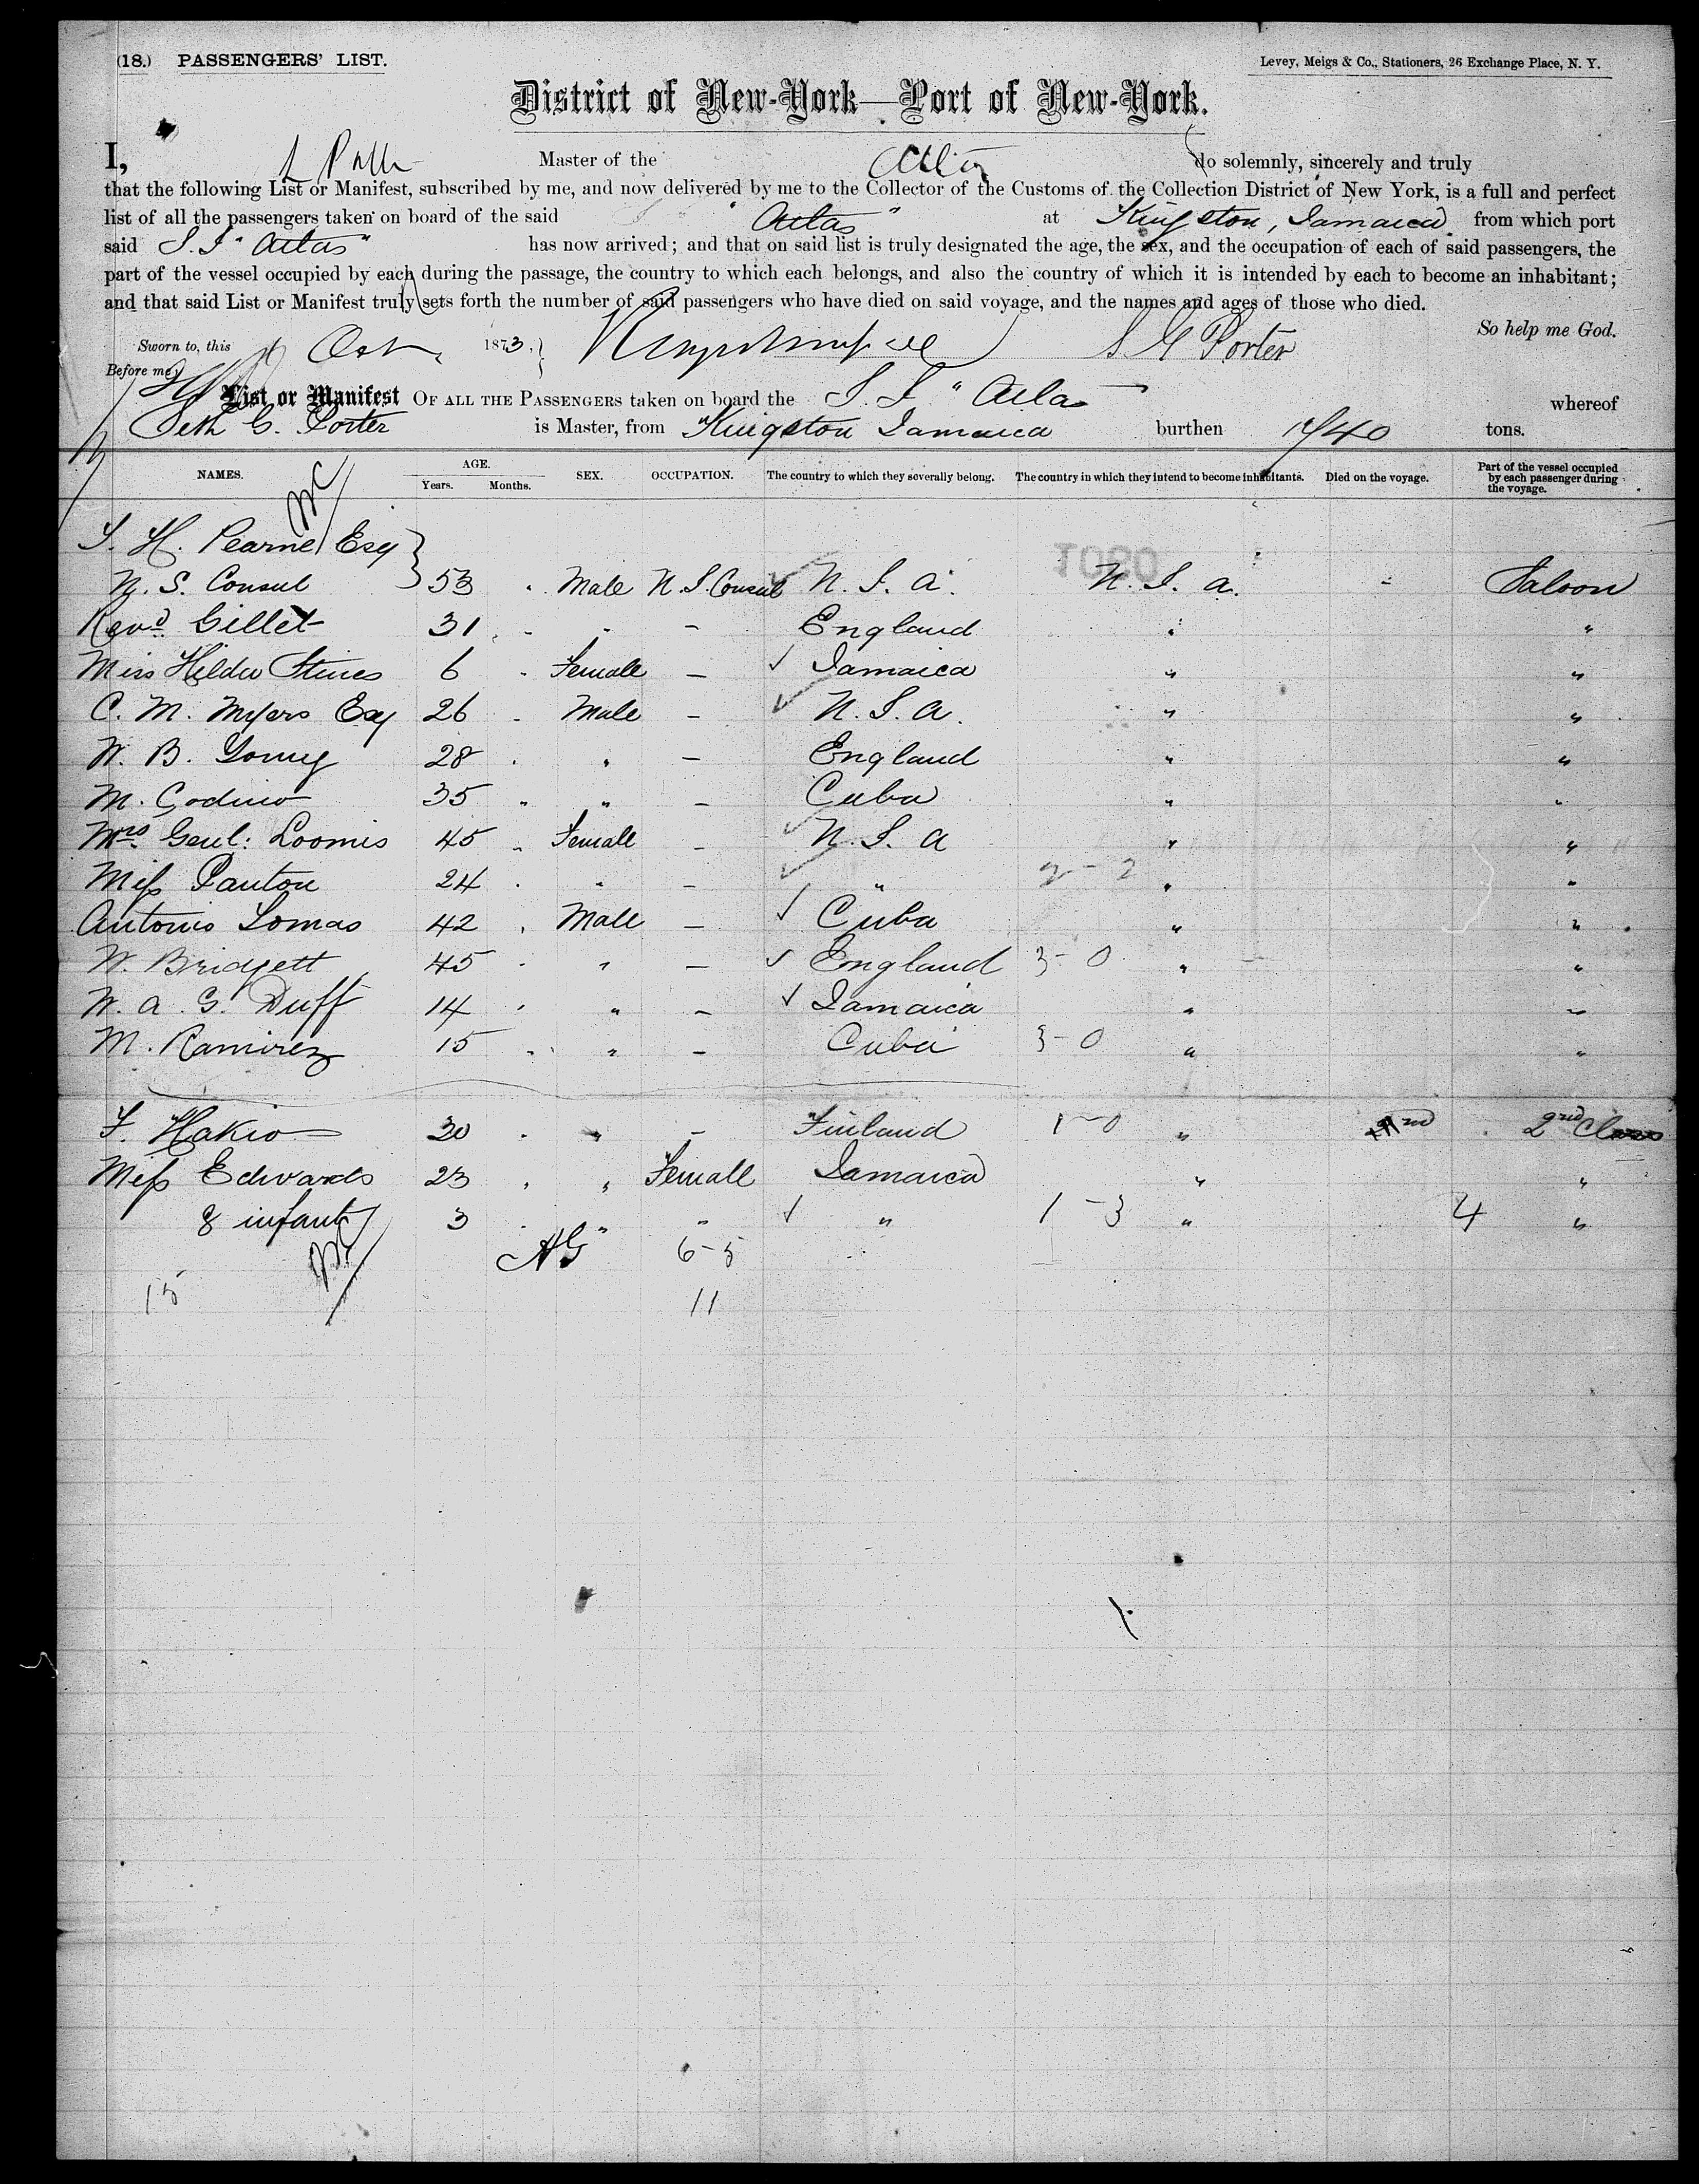 (18.) PASSENGERS' LIST.
Levey, Meigs & Co., Stationers, 26 Exchange Place, N. Y.
District of New-York—Port of New-York.
I, Master of the Atlas do solemnly, sincerely and truly
that the following List or Manifest, subscribed by me, and now delivered by me to the Collector of the Customs of the Collection District of New York, is a full and perfect
list of all the passengers taken on board of the said "Atlas" at Kingston, Jamaica. from which port
said S.S "Atlas" has now arrived; and that on said list is truly designated the age, the sex, and the occupation of each of said passengers, the
part of the vessel occupied by each during the passage, the country to which each belongs, and also the country of which it is intended by each to become an inhabitant;
and that said List or Manifest truly sets forth the number of said passengers who have died on said voyage, and the names and ages of those who died.
So help me God.
Sworn to, this Oct 1873. S G Porter
Before me,
List or Manifest OF ALL THE PASSENGERS taken on board the S.S. "Atlas whereof
Seth G. Porter is Master, from Kingston Jamaica burthen tons.
NAMES. AGE. Years. Months. SEX. OCCUPATION. The country to which they severally belong. The country in which they intend to become inhabitants. Died on the voyage. Part of the vessel occupied by each passenger during the voyage.
H. Pearne Esq
U.S. Consul 53 Male U.S. Consul U.S.A. U.S.A. Saloon
Revd Gillet 31 " - England " "
Miss Hilda Stines 6 Female - Jamaica " "
C. M. Myers Esq 26 Male - U.S.A. " "
W. B. 28 " - England " "
M. Godino 35 " " - Cuba " "
Mrs Genl: Loomis 45 Female - U.S.A " "
Miss Panton 24 " - " 2-2 " "
Antonio Lomas 42 Male - Cuba " "
W. Bridgett 45 " - England 3-0 " "
W. A. G. Duff 14 " - Jamaica " "
M. Ramirez 15 " - Cuba 3-0 " "
F. Hakio 30 " - Finland 1-0 " 2nd Class
Miss Edwards 23 " Female Jamaica " "
& infant 3 " " " 1-3 " 4 "
AG 6-5
15 11